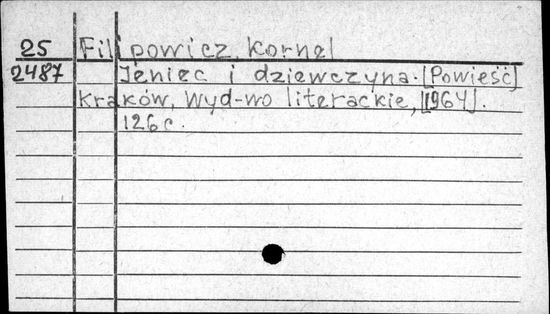 25 Filipowicz, Kornel
2487 Jeniec i dziewczyna. [Powieść]
Kraków, Wyd-wo literackie, [1964].
126 c.